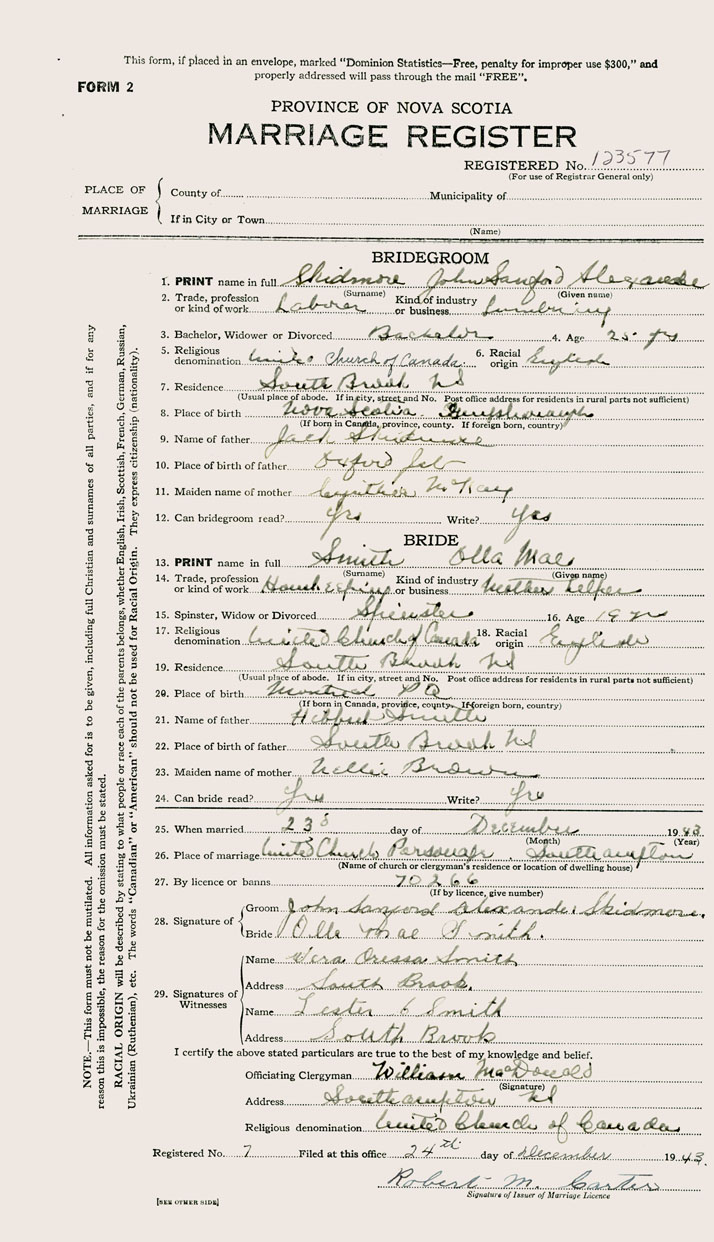 This form, if placed in an envelope, marked "Dominion Statistics—Free, penalty for improper use $300," and
properly addressed will pass through the mail "FREE".
FORM 2
PROVINCE OF NOVA SCOTIA
MARRIAGE REGISTER
REGISTERED No. 123577
(For use of Registrar General only)
PLACE OF MARRIAGE
County of Municipality of
If in City or Town
(Name)
BRIDEGROOM
1. PRINT name in full Skidmore John Sanford Alexander
(Surname) (Given name)
2. Trade, profession or kind of work Laborer Kind of industry or business Lumbering
3. Bachelor, Widower or Divorced Bachelor 4. Age 25 yrs
5. Religious denomination United Church of Canada. 6. Racial origin English
7. Residence South Brook NS
(Usual place of abode. If in city, street and No. Post office address for residents in rural parts not sufficient)
8. Place of birth Nova Scotia. Guysborough
(If born in Canada, province, county. If foreign born, country)
9. Name of father Jack Skidmore
10. Place of birth of father Oxford
11. Maiden name of mother Cynthia McKay
12. Can bridegroom read? Yes Write? Yes
BRIDE
13. PRINT name in full Smith Olla Mae
(Surname) (Given name)
14. Trade, profession or kind of work Housekeeping Kind of industry or business Mother helper
15. Spinster, Widow or Divorced Spinster 16. Age 19
17. Religious denomination United Church of Canada 18. Racial origin English
19. Residence South Brook NS
(Usual place of abode. If in city, street and No. Post office address for residents in rural parts not sufficient)
20. Place of birth Montreal PQ
(If born in Canada, province, county. If foreign born, country)
21. Name of father Smith
22. Place of birth of father South Brook NS
23. Maiden name of mother Nellie Brown
24. Can bride read? Yes Write? Yes
25. When married 23 day of December 1943
(Month) (Year)
26. Place of marriage United Church Parsonage, Southampton
(Name of church or clergyman's residence or location of dwelling house)
27. By licence or banns 70266
(If by licence, give number)
28. Signature of
Groom John Sanford Alexander Skidmore.
Bride Olla Mae Smith.
29. Signatures of Witnesses
Name Vera Oressa Smith
Address South Brook.
Name Lester Smith
Address South Brook
I certify the above stated particulars are true to the best of my knowledge and belief.
Officiating Clergyman William MacDonald
(Signature)
Address Southampton NS
Religious denomination United Church of Canada
Registered No. 7 Filed at this office 24th day of December 1943.
Robert M. Carter
Signature of Issuer of Marriage Licence
[SEE OTHER SIDE]
NOTE.—This form must not be mutilated. All information asked for is to be given, including full Christian and surnames of all parties, and if for any
reason this is impossible, the reason for the omission must be stated.
RACIAL ORIGIN will be described by stating to what people or race each of the parents belongs, whether English, Irish, Scottish, French, German, Russian,
Ukrainian (Ruthenian), etc. The words "Canadian" or "American" should not be used for Racial Origin. They express citizenship (nationality).